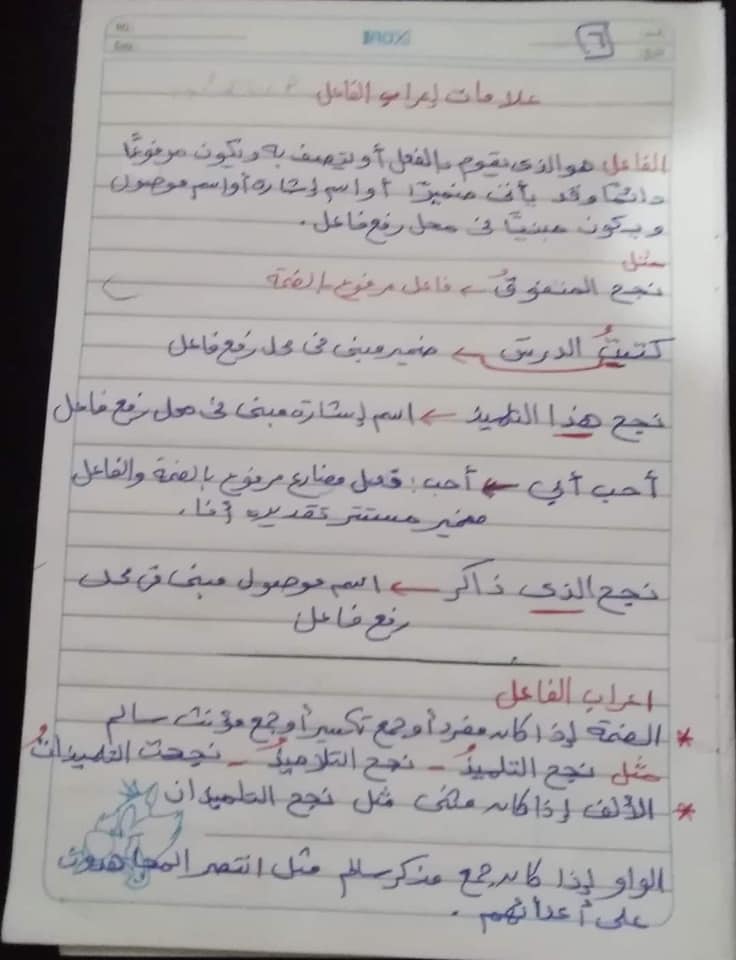 ٦
علامات إعراب الفاعل
الفاعل هو الذى يقوم بالفعل أو يتصف به ويكون مرفوعًا
دائمًا وقد يأتى ضميرًا أو اسم إشارة أو اسم موصول
ويكون مبنيًا فى محل رفع فاعل.
مثل
نجح المتفوقُ ← فاعل مرفوع بالضمة
كتبتُ الدرس ← ضمير مبنى فى محل رفع فاعل
نجح هذا التلميذ ← اسم إشارة مبنى فى محل رفع فاعل
أحب أبي ← أحب: فعل مضارع مرفوع بالضمة والفاعل
ضمير مستتر تقديره أنا.
نجح الذى ذاكر ← اسم موصول مبنى فى محل
رفع فاعل
اعراب الفاعل
* الضمة إذا كان مفرد أو جمع تكسير أو جمع مؤنث سالم
مثل نجح التلميذُ - نجح التلاميذُ - نجحت التلميذاتُ
* الألف إذا كان مثنى مثل نجح التلميذان
الواو إذا كان جمع مذكر سالم مثل انتصر المجاهدون
على أعدائهم.